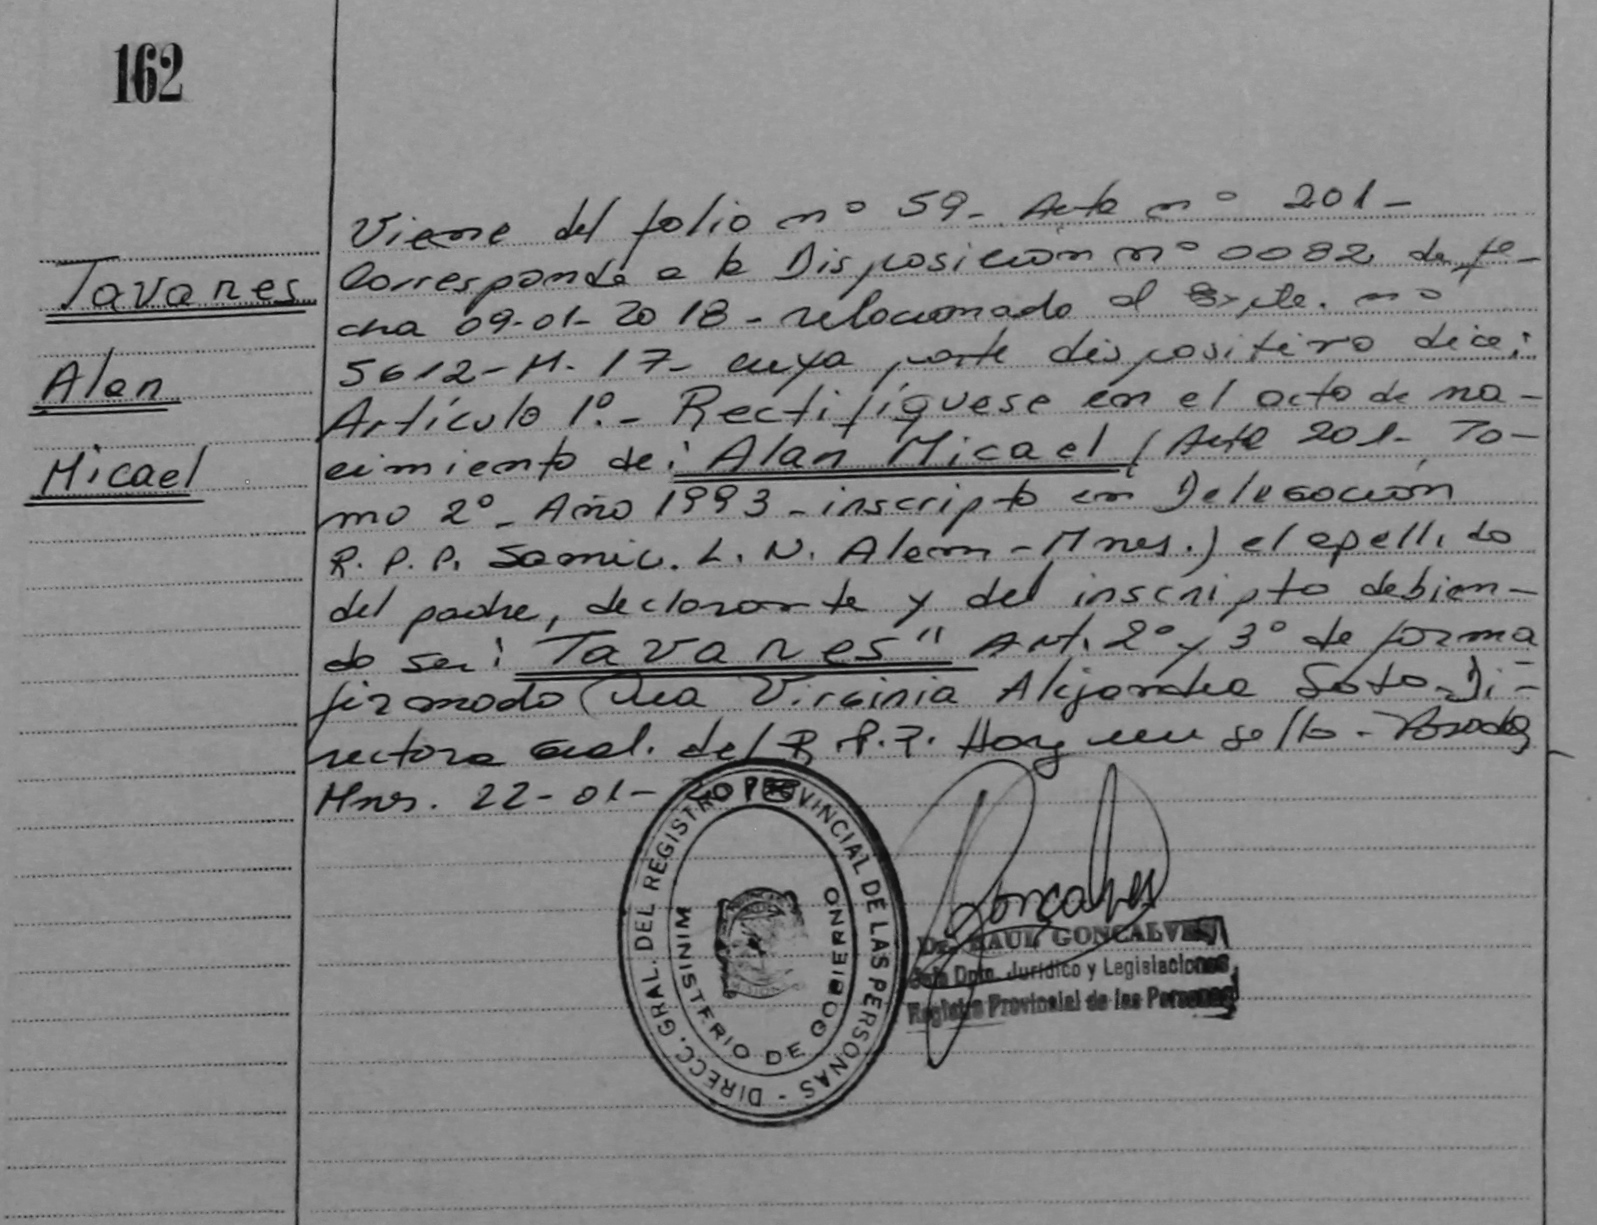 162
Tavares
Alan
Micael
Viene del folio nº 59- Acta nº 201-
Corresponde a la Disposición nº 0082 de fe-
cha 09-01-2018- relacionado al Expte. nº
5612-M-17- cuya parte dispositiva dice:
Artículo 1º.- Rectifíquese en el acta de na-
cimiento de: Alan Micael (Acta 201- To-
mo 2º- Año 1993- inscripto en Delegación
R.P.P. Samic. L.N. Alem-Mnes.) el apellido
del padre, declarante y del inscripto debien-
do ser: Tavares" Art. 2º y 3º de forma
firmado Dra Virginia Alejandra Soto-Di-
rectora Gral. del R.P.P. Hay un sello-
Mnes. 22-01-
DIRECC. GRAL. DEL REGISTRO PROVINCIAL DE LAS PERSONAS -
MINISTERIO DE GOBIERNO
Goncalves
Dr. RAUL GONCALVES
Jefe Dpto. Jurídico y Legislaciones
Registro Provincial de las Personas